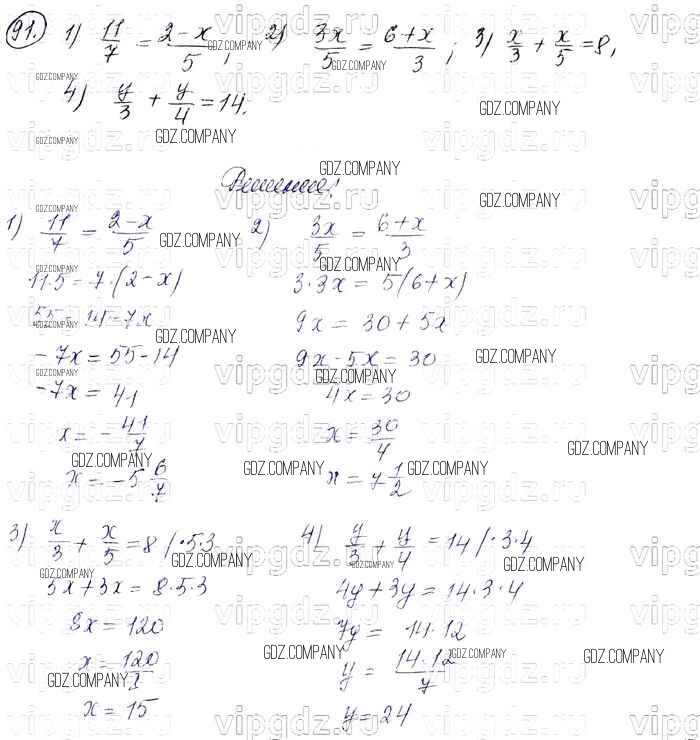 91. 1) 11/7 = (2-x)/5; 2) 3x/5 = (6+x)/3; 3) x/3 + x/5 = 8,
4) y/3 + y/4 = 14.
Решение!
1) 11/7 = (2-x)/5
11·5 = 7·(2-x)
55 = 14-7x
-7x = 55-14
-7x = 41
x = -41/7
x = -5 6/7
2) 3x/5 = (6+x)/3
3·3x = 5(6+x)
9x = 30+5x
9x-5x = 30
4x = 30
x = 30/4
x = 7 1/2
3) x/3 + x/5 = 8 /·5·3
5x+3x = 8·5·3
8x = 120
x = 120/8
x = 15
4) y/3 + y/4 = 14 /·3·4
4y+3y = 14·3·4
7y = 14·12
y = 14·12/7
y = 24
GDZ.COMPANY
vipgdz.ru